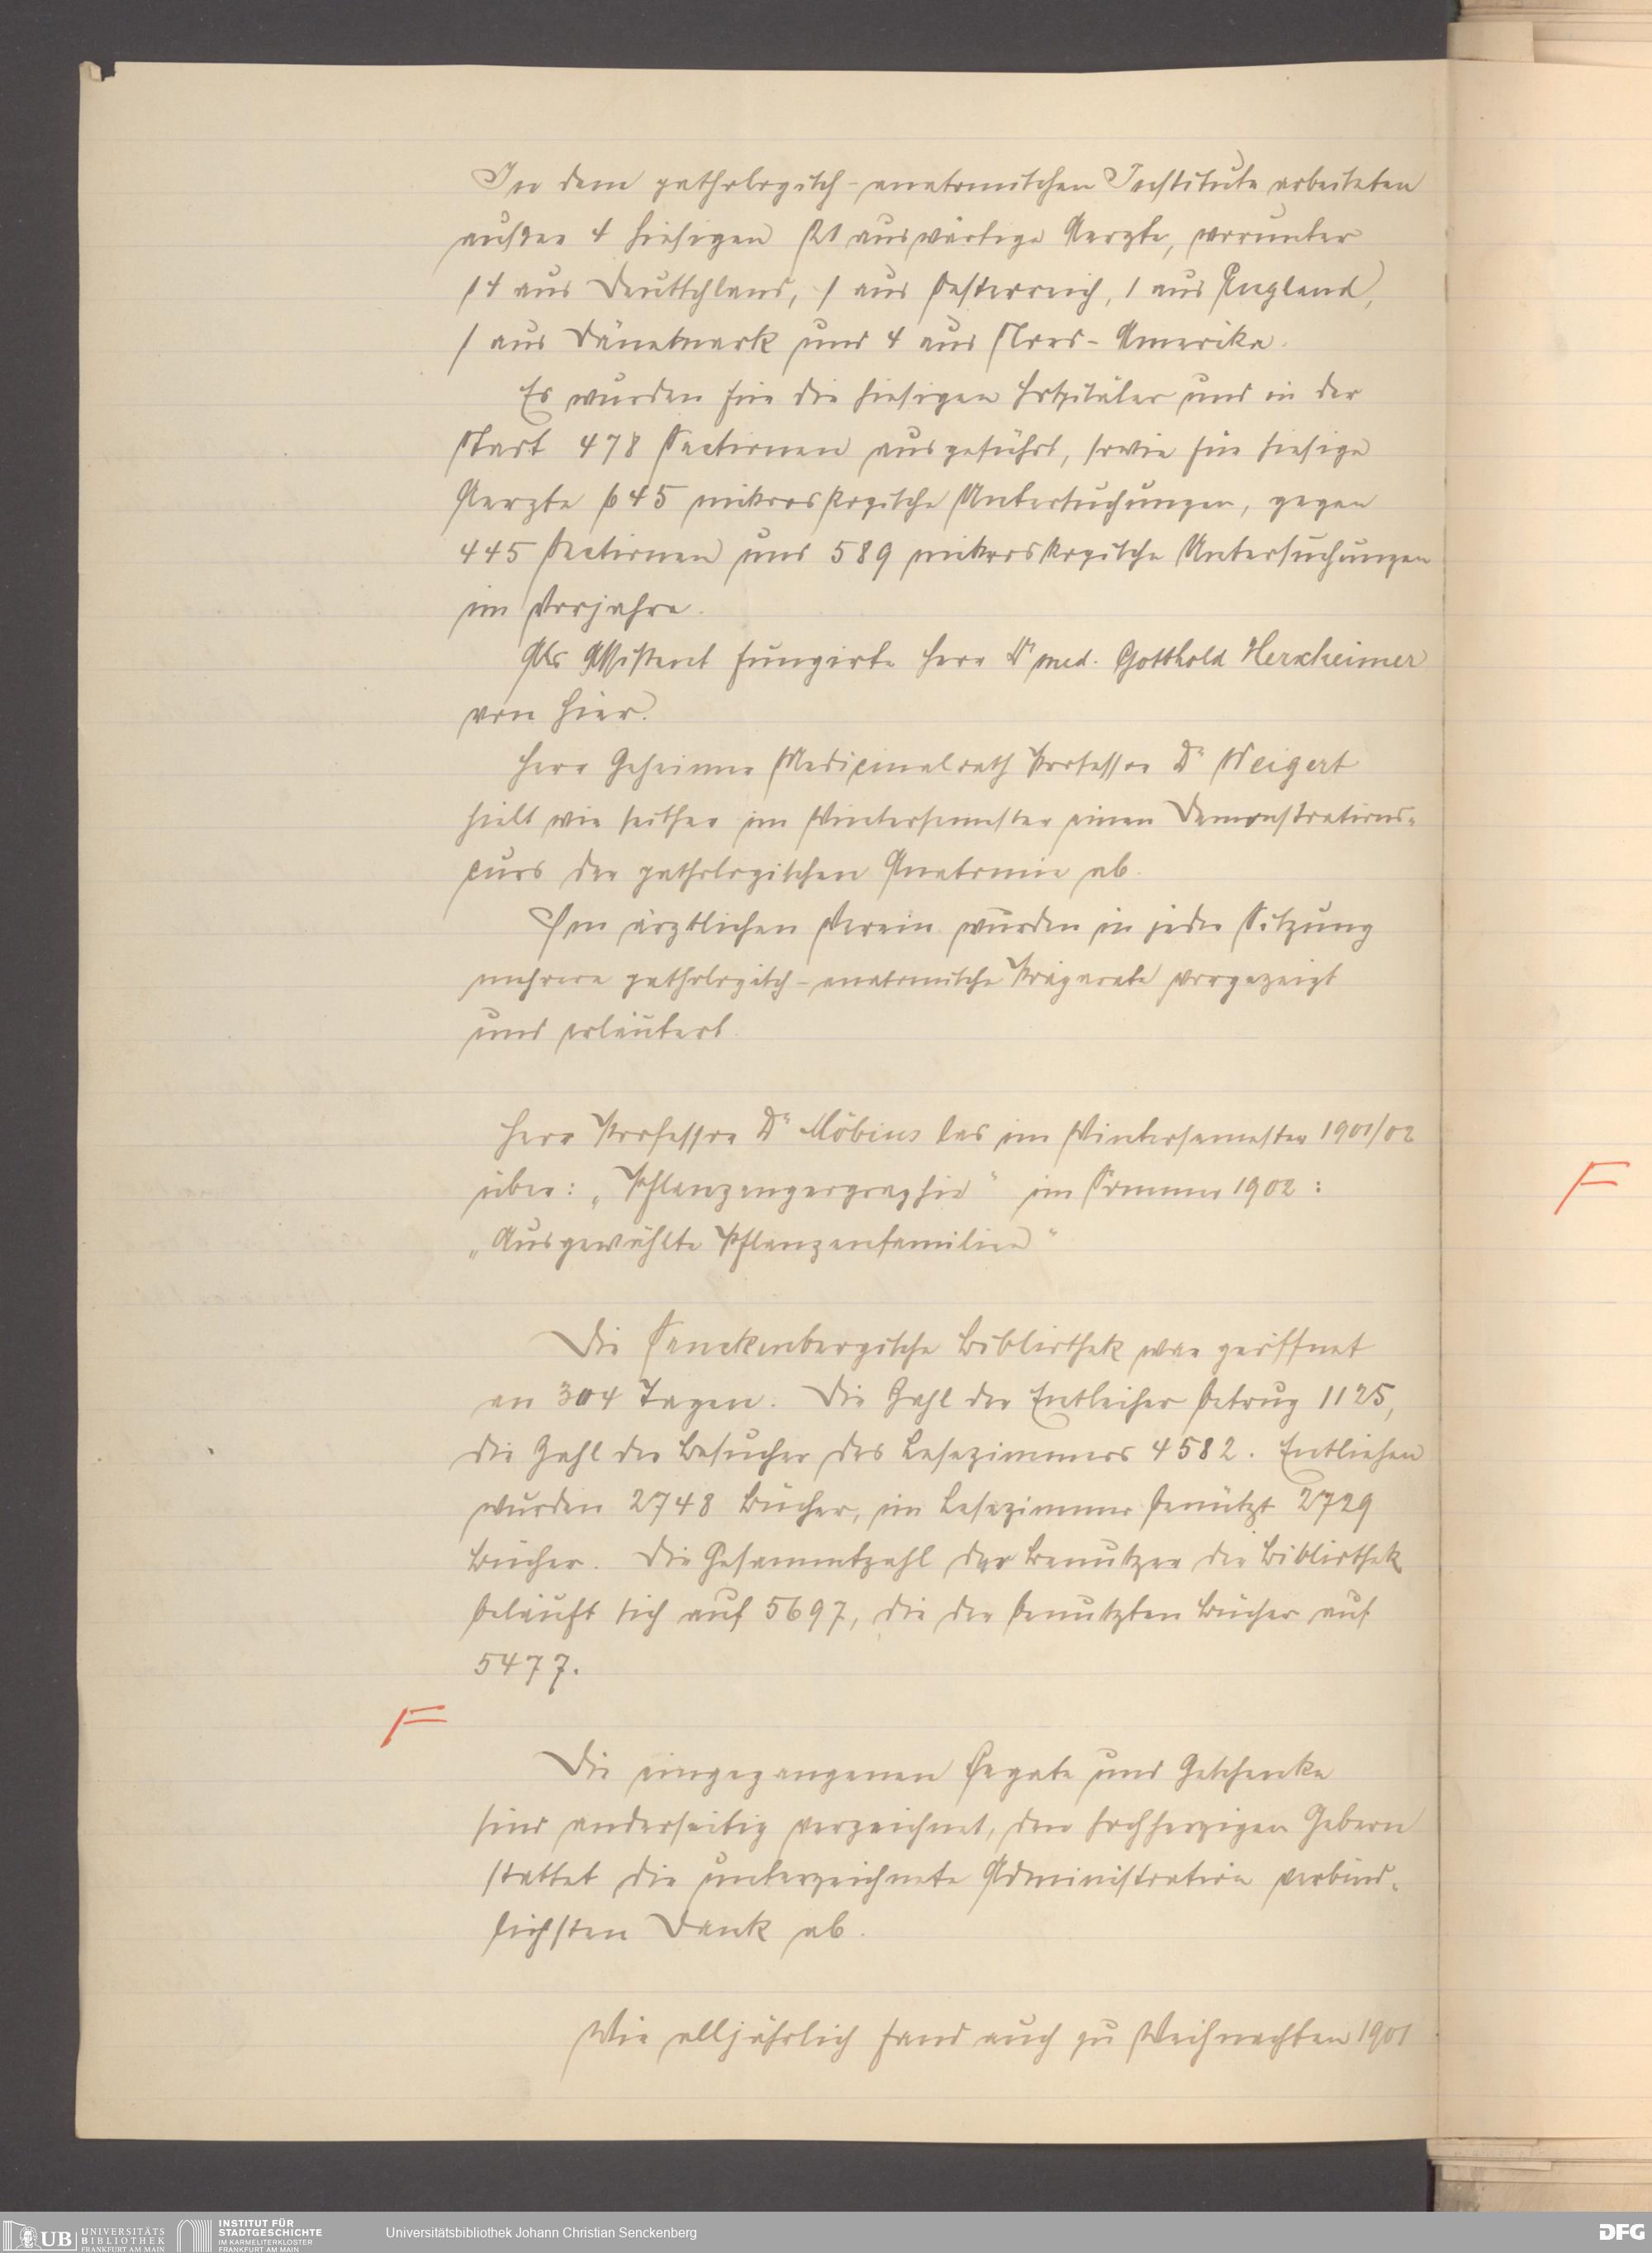 In dem pathologisch-anatomischen Institute arbeiteten
außer 4 hiesigen 21 auswärtige Aerzte, worunter
14 aus Deutschland, 1 aus Oesterreich, 1 aus England,
1 aus Dänemark und 4 aus Nord-Amerika.
Es wurden für die hiesigen Hospitäler und in der
Stadt 478 Sectionen ausgeführt, sowie für hiesige
Aerzte 645 mikroskopische Untersuchungen, gegen
445 Sectionen und 589 mikroskopische Untersuchungen
im Vorjahre.
Als Assistent fungirte Herr Dr med. Gotthold Herxheimer
von hier.
Herr Geheimer Medicinalrath Professor Dr Weigert
hielt wie seither im Wintersemester einen Demonstrations-
curs der pathologischen Anatomie ab.
Im ärztlichen Verein wurden in jeder Sitzung
mehrere pathologisch-anatomische Präparate vorgezeigt
und erläutert.
Herr Professor Dr Möbius las im Wintersemester 1901/02
über: „Pflanzengeographie" im Sommer 1902:
„Ausgewählte Pflanzenfamilien"
F
Die Senckenbergische Bibliothek war geöffnet
an 304 Tagen. Die Zahl der Entleiher betrug 1125,
die Zahl der Besucher des Lesezimmers 4582. Entliehen
wurden 2748 Bücher, im Lesezimmer benützt 2729
Bücher. Die Gesammtzahl der Benutzer der Bibliothek
beläuft sich auf 5697, die der benutzten Bücher auf
5477.
F
Die eingegangenen Legate und Geschenke
sind anderseitig verzeichnet, den hochherzigen Gebern
stattet die unterzeichnete Administration verbind-
lichsten Dank ab.
Wie alljährlich fand auch zu Weihnachten 1901
UB UNIVERSITÄTS
BIBLIOTHEK
FRANKFURT AM MAIN
INSTITUT FÜR
STADTGESCHICHTE
IM KARMELITERKLOSTER
FRANKFURT AM MAIN
Universitätsbibliothek Johann Christian Senckenberg
DFG